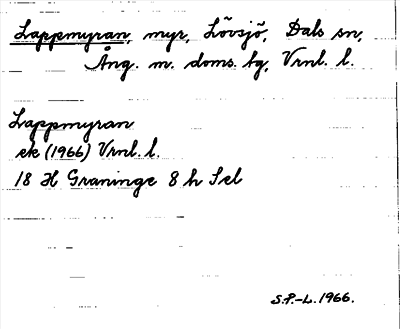 Lappmyran, myr, Lövsjö, Dals sn,
Ång. m. doms. bg, Vrnl. l.
Lappmyran
ek (1966) Vrnl. l.
18 H Graninge 8 h Sel
S.P.-L. 1966.